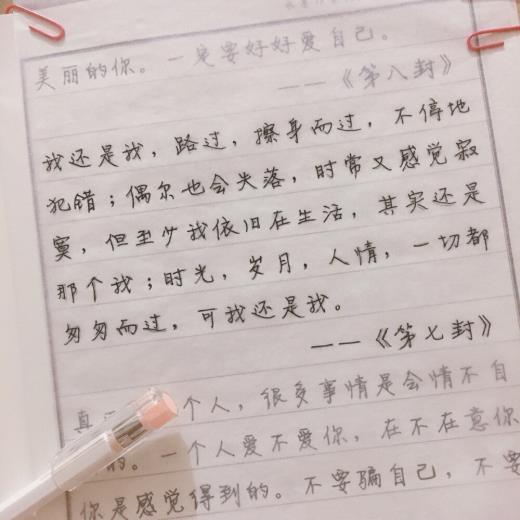 美丽的你。一定要好好爱自己。
——《第八封》
我还是我，路过，擦身而过，不停地
犯错；偶尔也会失落，时常又感觉寂
寞，但至少我依旧在生活，其实还是
那个我；时光，岁月，人情，一切都
匆匆而过，可我还是我。
——《第七封》
真 个人，很多事情是会情不自
的。一个人爱不爱你，在不在意你
你是感觉得到的。不要骗自己，不要